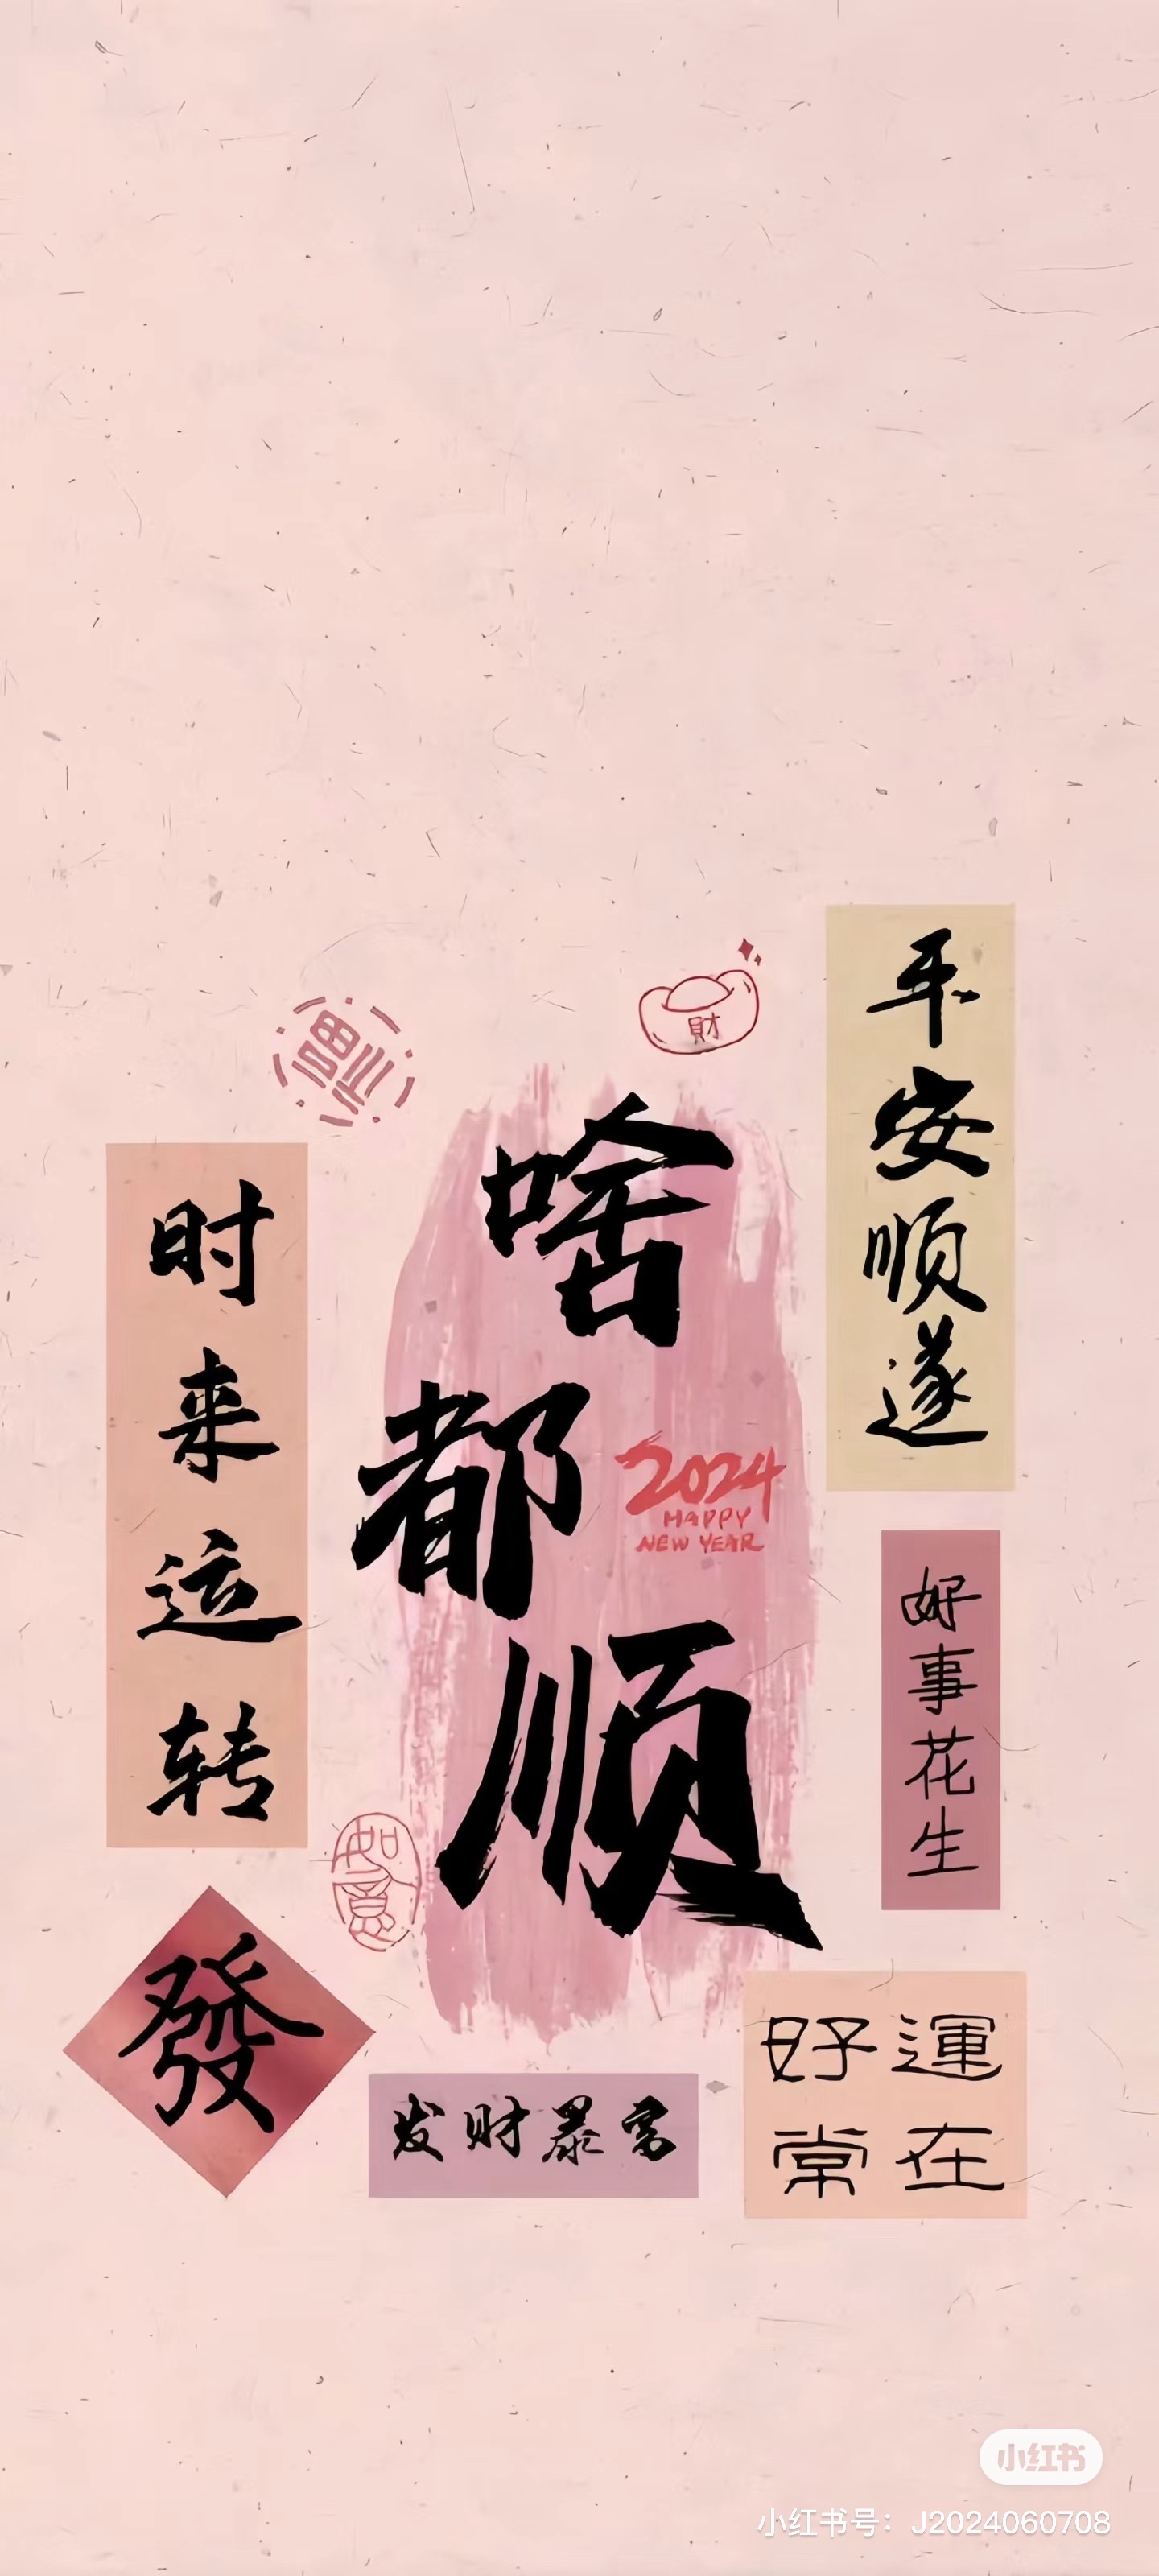 福
財
平安顺遂
啥都顺
时来运转
2024
HAPPY
NEW YEAR
好事花生
如意
發
发财暴富
好運
常在
小红书
小红书号：J2024060708